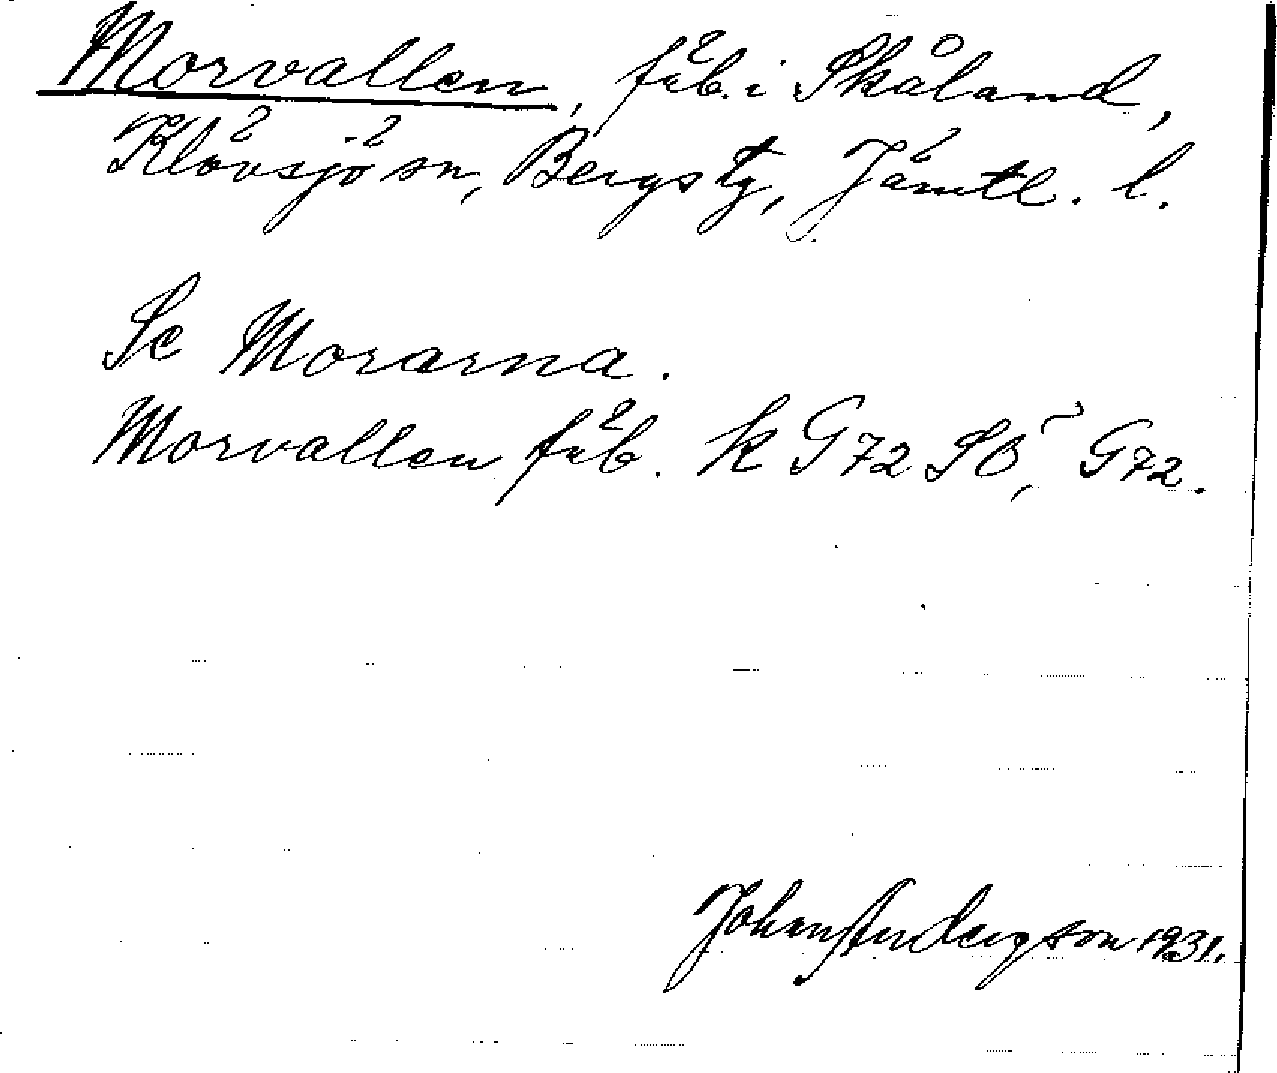 Morvallen, fäb. i Skåland,
Klövsjö sn, Bergs tg, Jämtl. l.
Se Morarna.
Morvallen fäb. k G72 SO, G72.
1931.